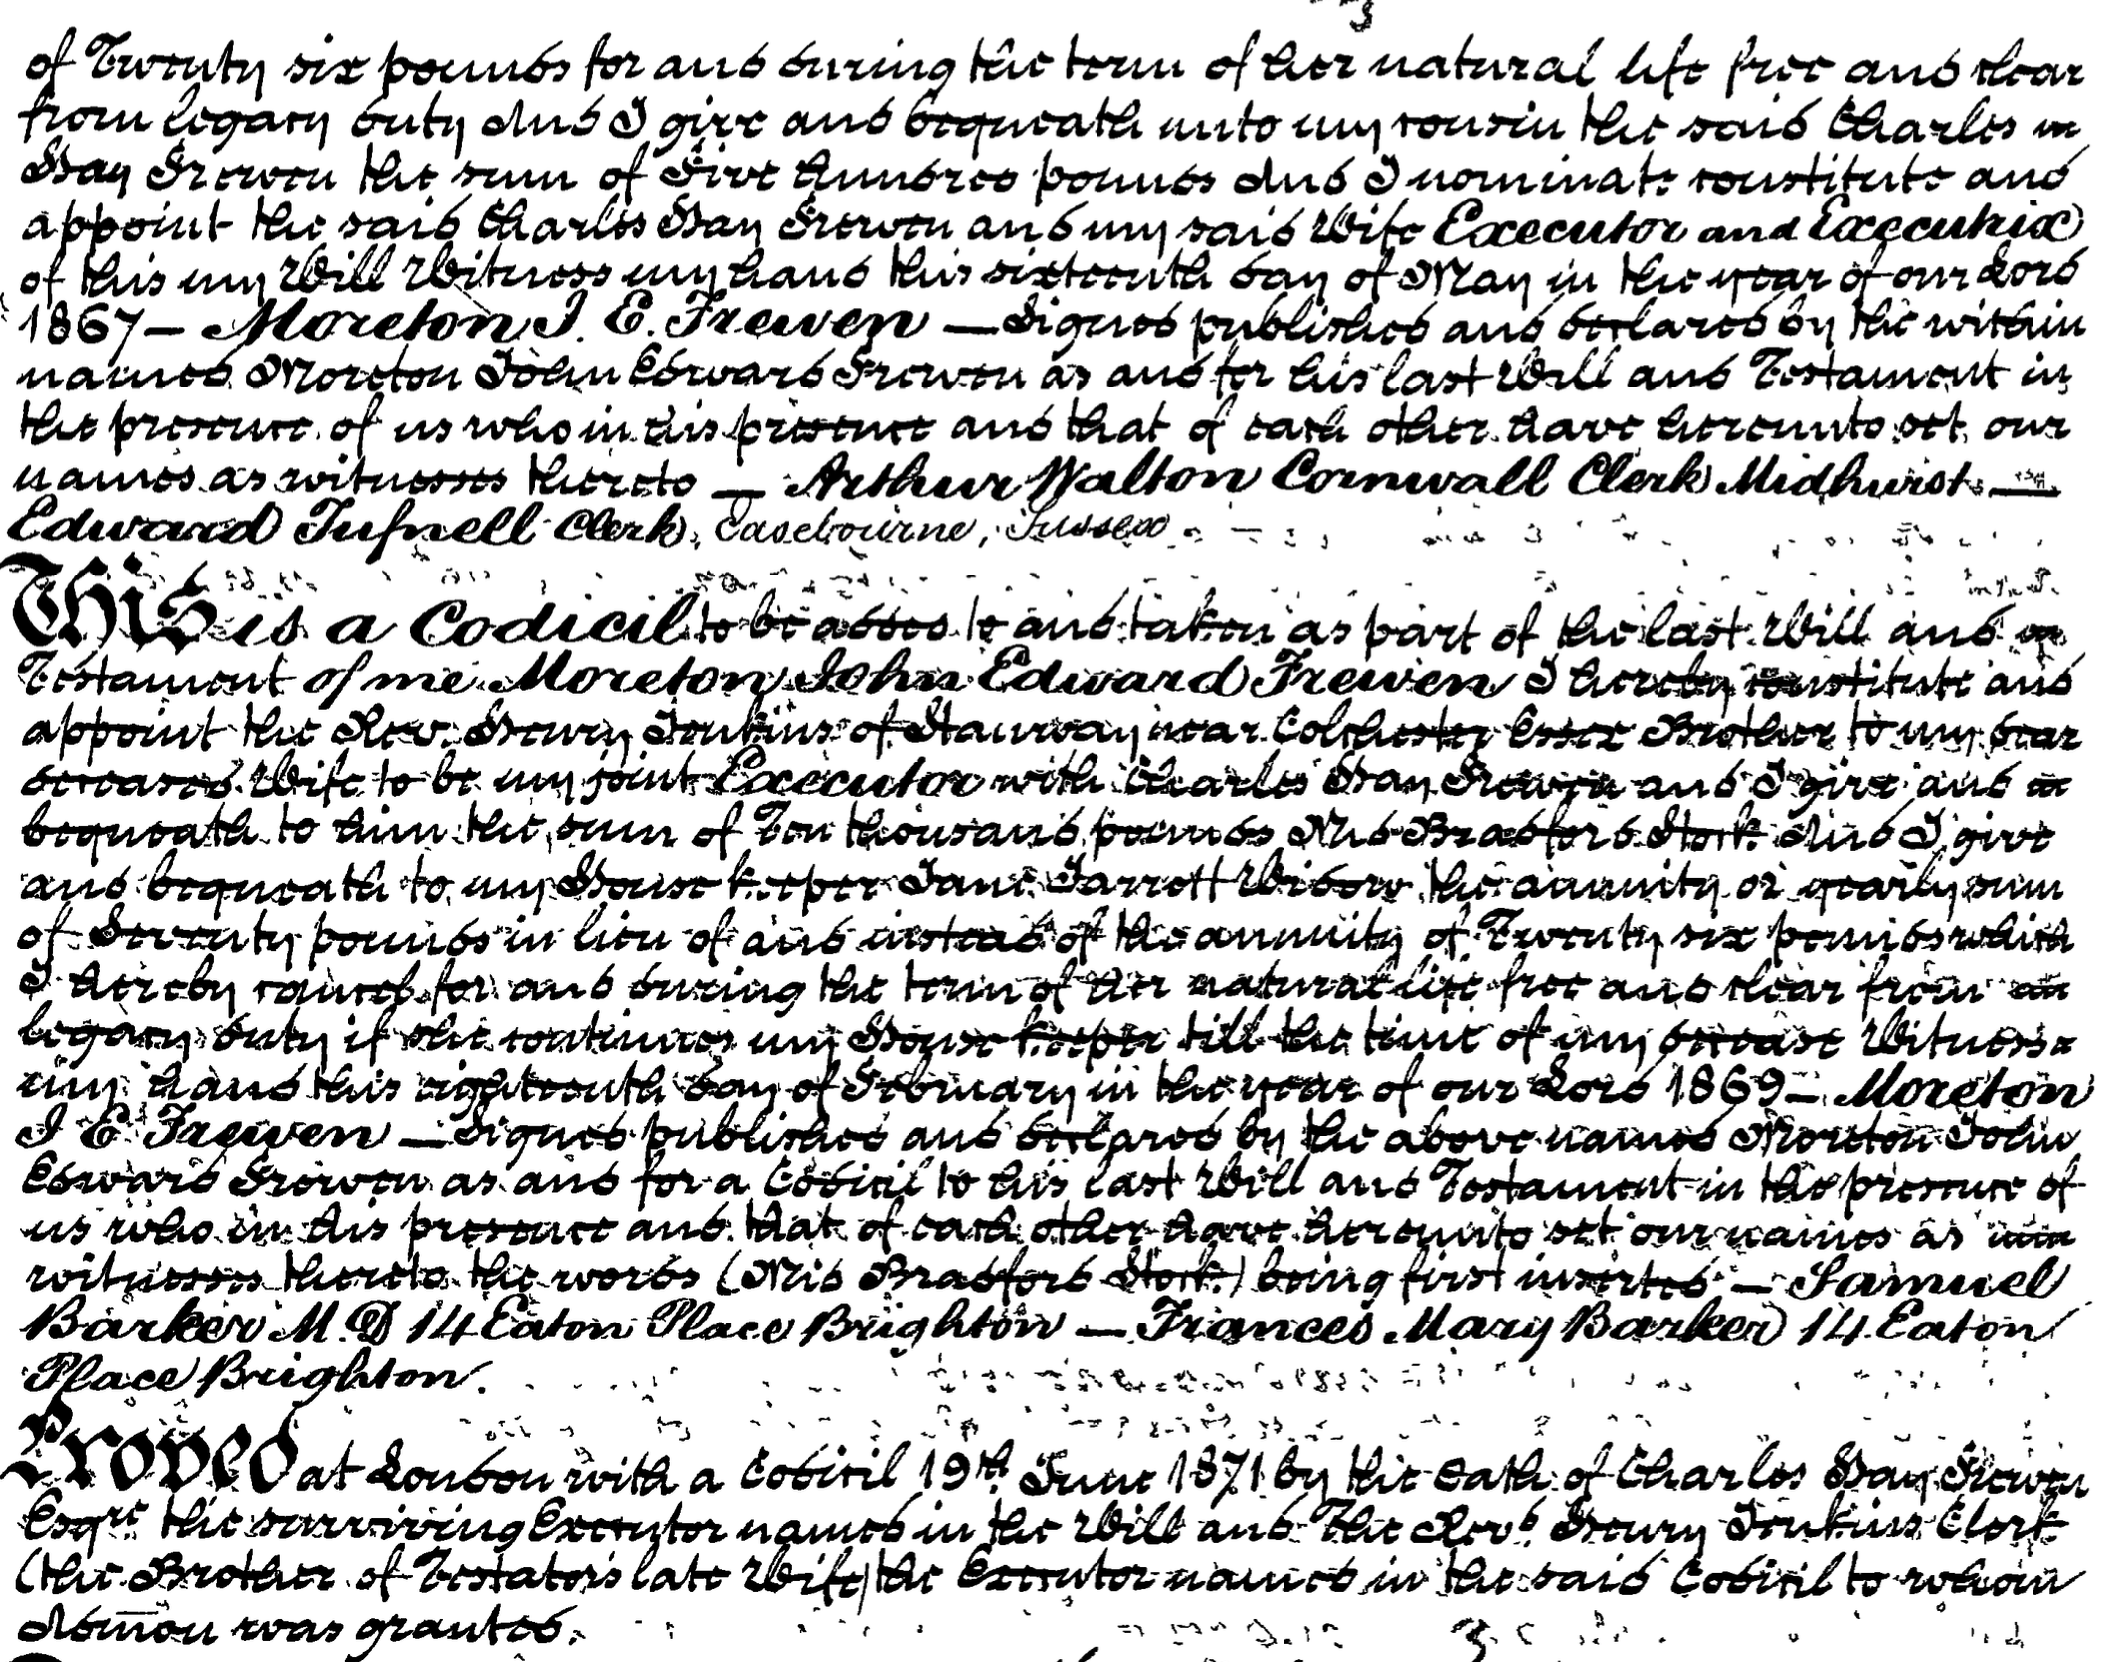 of Twenty six pounds for and during the term of her natural life free and clear
from legacy duty And I give and bequeath unto my cousin the said Charles
Hay Frewen the sum of Five hundred pounds And I nominate constitute and
appoint the said Charles Hay Frewen and my said Wife Executor and Executrix
of this my Will Witness my hand this sixteenth day of May in the year of our Lord
1867 — Moreton J. E. Frewen — Signed published and declared by the within
named Moreton John Edward Frewen as and for his last Will and Testament in
the presence of us who in his presence and that of each other have hereunto set our
names as witnesses thereto — Arthur Walton Cornwall Clerk Midhurst —
Edward Tufnell Clerk, Easebourne, Sussex
This is a Codicil to be added to and taken as part of the last Will and
Testament of me Moreton John Edward Frewen I hereby constitute and
appoint the Rev. Henry Jenkins of Stanway near Colchester Essex Brother to my dear
deceased Wife to be my joint Executor with Charles Hay Frewen and I give and
bequeath to him the sum of Ten thousand pounds Mid Bradford Stock And I give
and bequeath to my House keeper Jane Jarrett Widow the annuity or yearly sum
of Seventy pounds in lieu of and instead of the annuity of Twenty six pounds which
I hereby cancel for and during the term of her natural life free and clear from
legacy duty if she continues my House keeper till the time of my decease Witness
my hand this eighteenth day of February in the year of our Lord 1869 — Moreton
J E Frewen — Signed published and declared by the above named Moreton John
Edward Frewen as and for a Codicil to his last Will and Testament in the presence of
us who in his presence and that of each other have hereunto set our names as
witnesses thereto the words (Mid Bradford Stock) being first inserted — Samuel
Barker M.D 14 Eaton Place Brighton — Frances Mary Barker 14 Eaton
Place Brighton.
Proved at London with a Codicil 19th June 1871 by the Oath of Charles Hay Frewen
Esqre the surviving Executor named in the Will and The Revd Henry Jenkins Clerk
(the Brother of Testator's late Wife) the Executor named in the said Codicil to whom
Admon was granted.